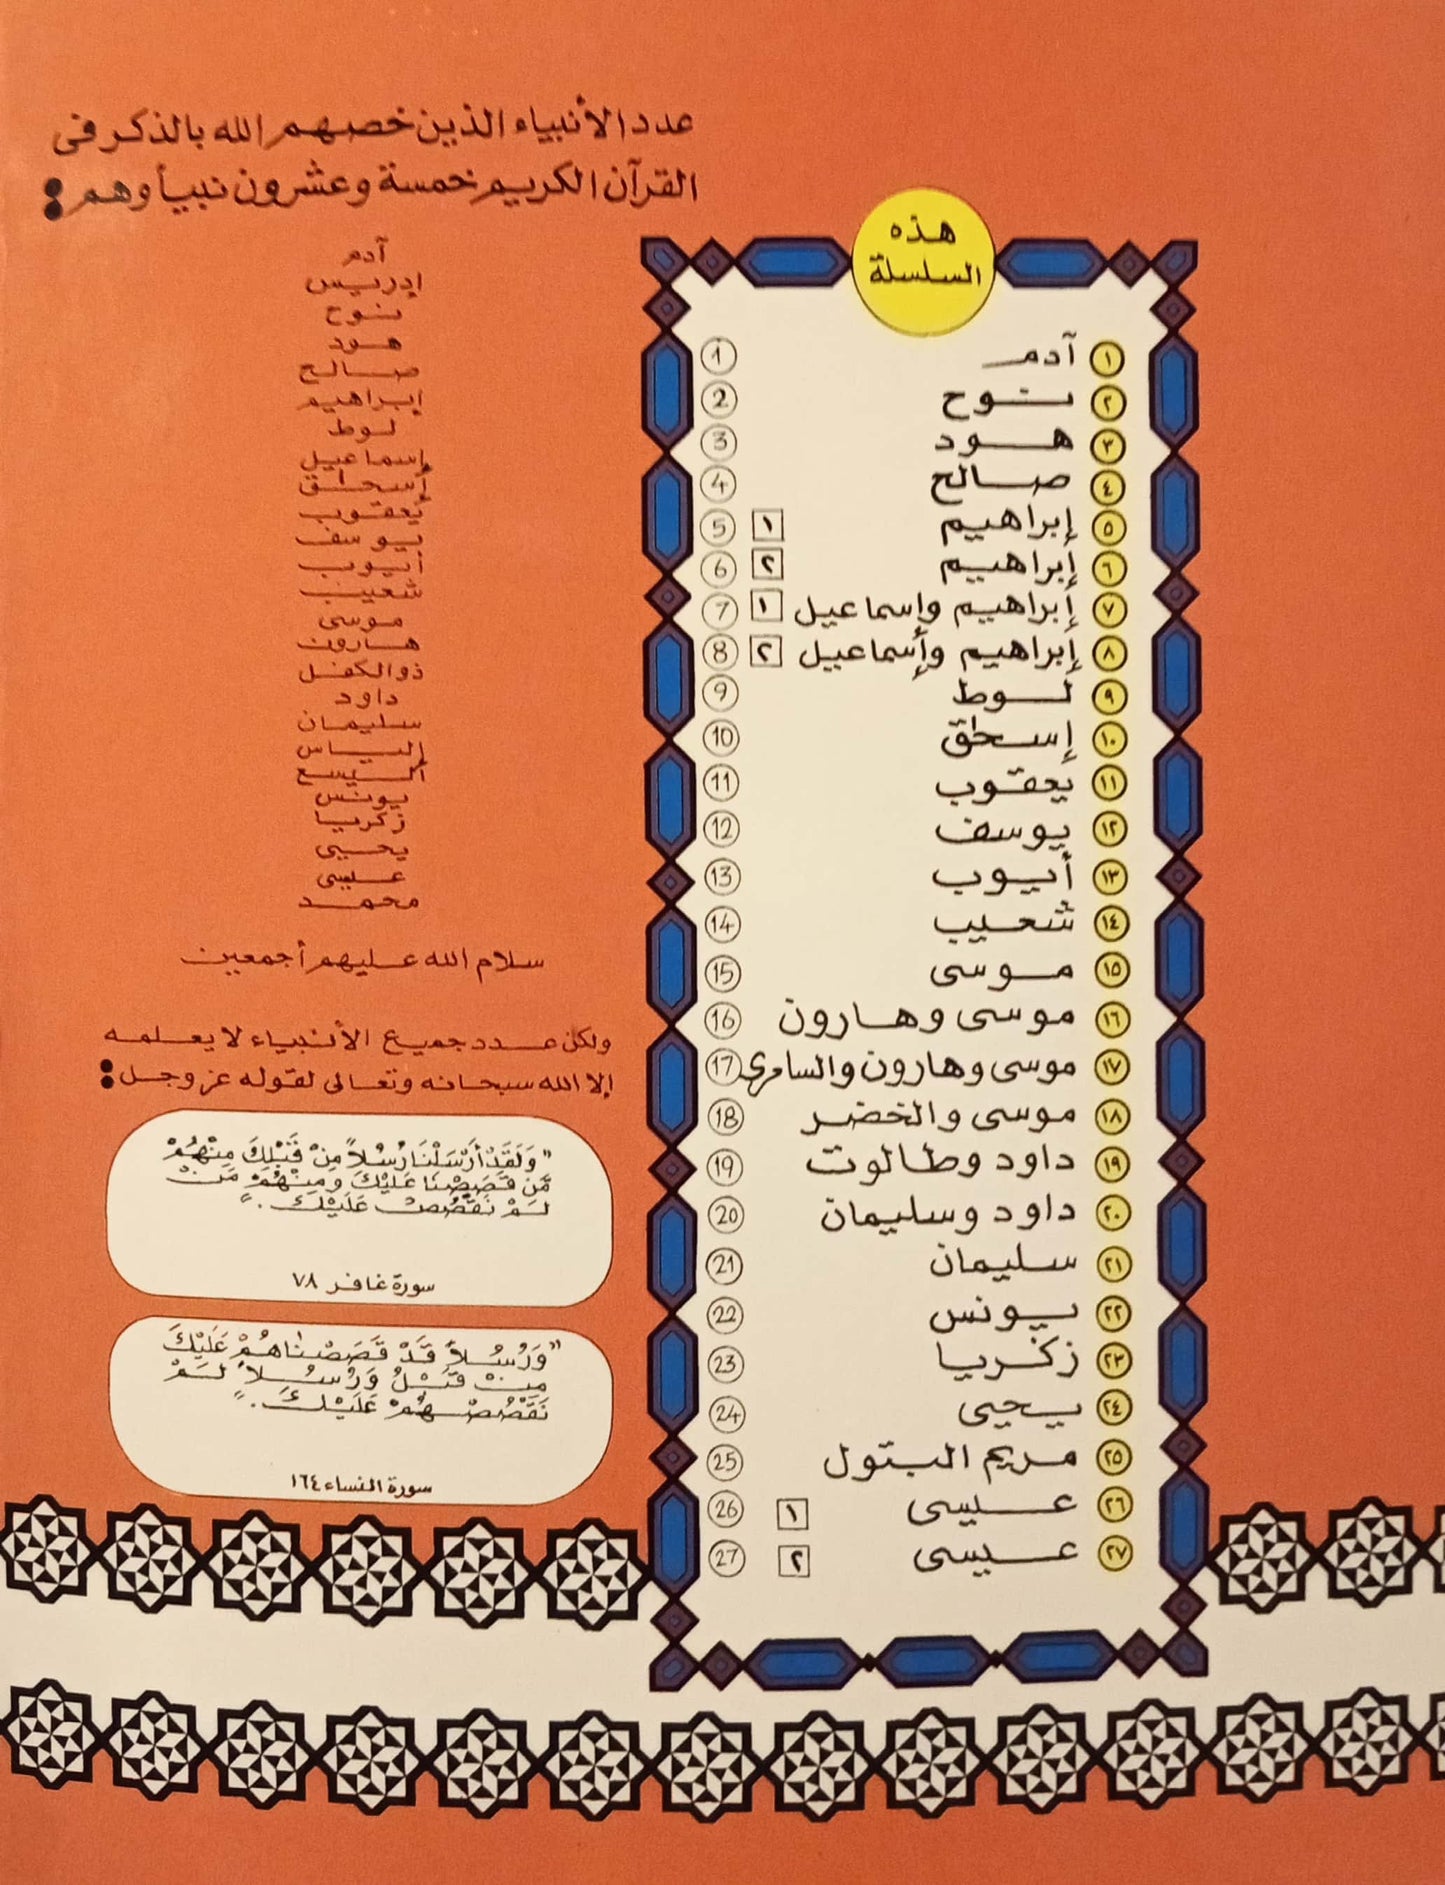 عدد الأنبياء الذين خصهم الله بالذكر في
القرآن الكريم خمسة وعشرون نبيأ وهم :
آدم
إدريس
نوح
هود
صالح
إبراهيم
لوط
إسماعيل
إسحاق
يعقوب
يوسف
أيوب
شعيب
موسى
هارون
ذو الكفل
داود
سليمان
إلياس
اليسع
يونس
زكريا
يحيى
عيسى
محمد
سلام الله عليهم أجمعين
ولكن عدد جميع الأنبياء لا يعلمه
إلا الله سبحانه وتعالى لقوله عز وجل :
"وَلَقَدْ أَرْسَلْنَا رُسُلاً مِنْ قَبْلِكَ مِنْهُمْ
مَّن قَصَصْنَا عَلَيْكَ وَمِنْهُمْ مَنْ
لَمْ نَقْصُصْ عَلَيْكَ ."
سورة غافر ٧٨
"وَرُسُلاً قَدْ قَصَصْنَاهُمْ عَلَيْكَ
مِنْ قَبْلُ وَرُسُلاً لَمْ
نَقْصُصْهُمْ عَلَيْكَ ."
سورة النساء ١٦٤
هذه
السلسلة
١ آدم 1
٢ نوح 2
٣ هود 3
٤ صالح 4
٥ إبراهيم ١ 5
٦ إبراهيم ٢ 6
٧ إبراهيم وإسماعيل ١ 7
٨ إبراهيم وإسماعيل ٢ 8
٩ لوط 9
١٠ إسحٰق 10
١١ يعقوب 11
١٢ يوسف 12
١٣ أيوب 13
١٤ شعيب 14
١٥ موسى 15
١٦ موسى وهارون 16
١٧ موسى وهارون والسامري 17
١٨ موسى والخضر 18
١٩ داود وطالوت 19
٢٠ داود وسليمان 20
٢١ سليمان 21
٢٢ يونس 22
٢٣ زكريا 23
٢٤ يحيى 24
٢٥ مريم البتول 25
٢٦ عيسى ١ 26
٢٧ عيسى ٢ 27